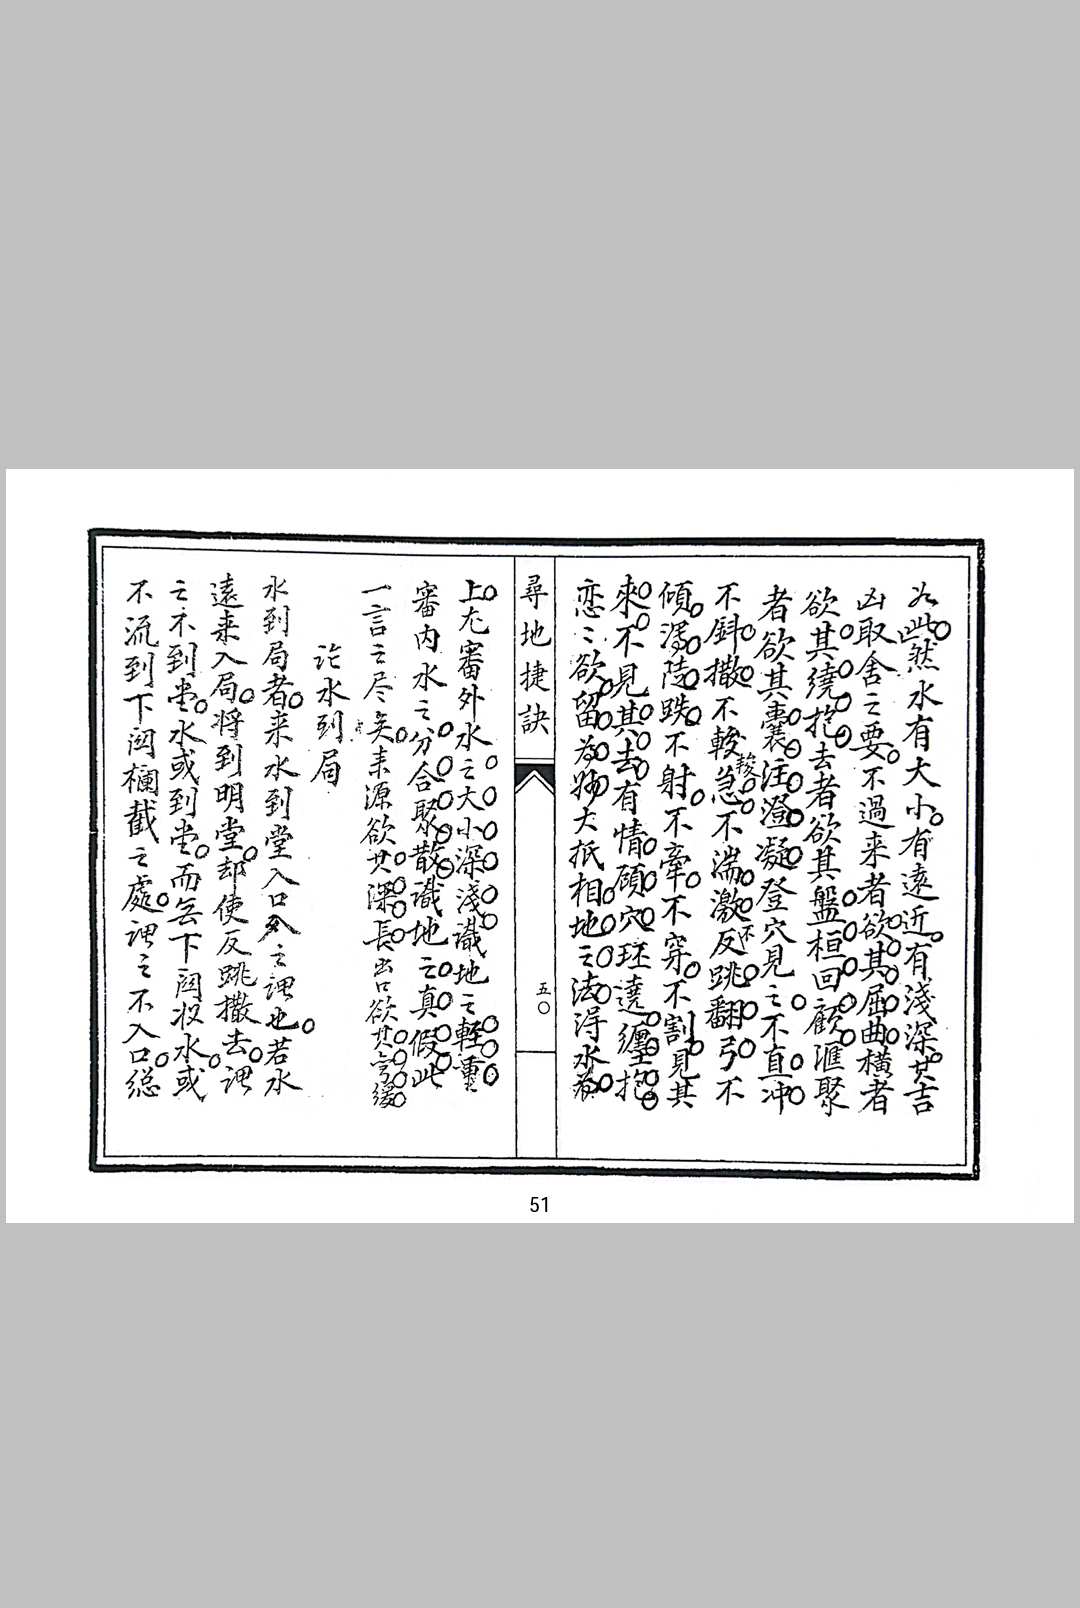 如此然水有大小有遠近有淺深其吉
凶取舍之要不過来者欲其屈曲橫者
欲其繞抱去者欲其盤桓回顧滙聚
者欲其囊注澄凝登穴見之不直冲
不斜撒不峻急不湍激不反跳翻弓不
傾瀉陡跌不射不牽不穿不割見其
來不見其去有情顧穴环遶纏抱
恋〻欲留為妙大抵相地之法得水為
尋地捷訣
五〇
上尤審外水之大小深淺識地之輕重
審内水之分合聚散識地之真假此
一言之尽矣来源欲其深長出口欲其弯緩
论水到局
水到局者来水到堂入口之謂也若水
遠来入局将到明堂却使反跳撒去謂
之不到堂水或到堂而無下関收水或
不流到下関欄截之處謂之不入口総
51